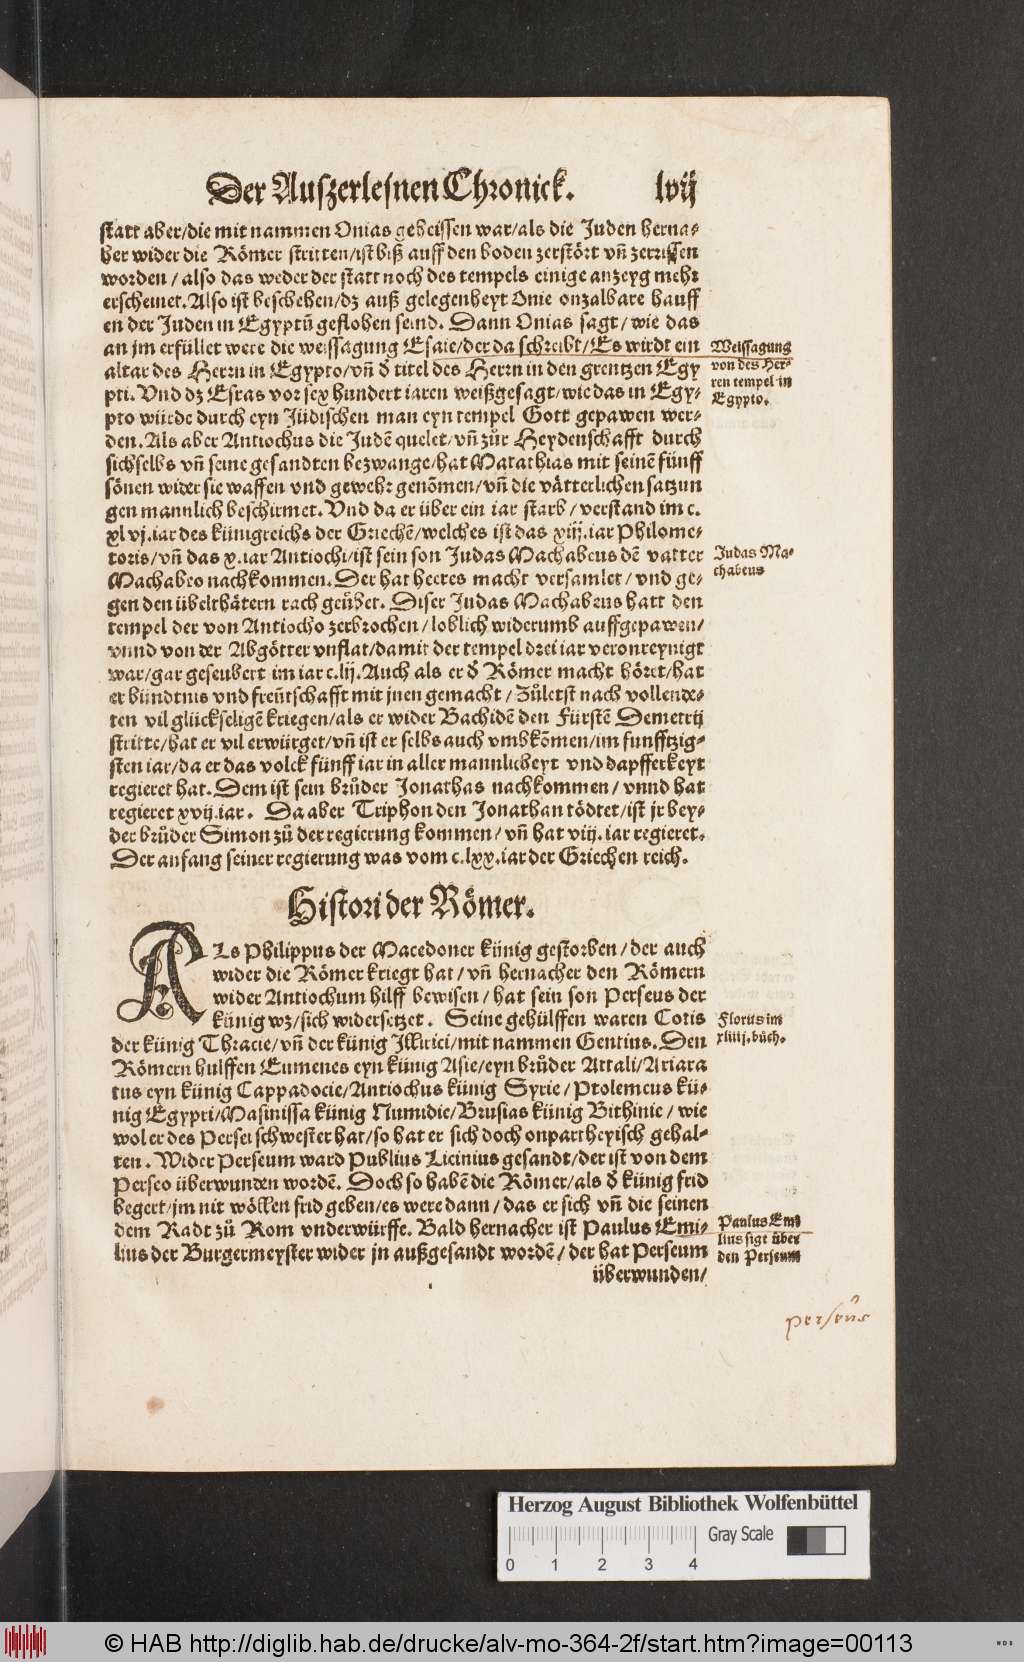 Der Auszerlesnen Chronick. lvij
statt aber/die mit nammen Onias geheissen war/als die Juden herna⸗
her wider die Römer stritten/ist biß auff den boden zerstört vñ zerrissen
worden/also das weder der statt noch des tempels einige anzeyg mehr
erscheinet. Also ist beschehen/dz auß gelegenheyt Onie onzalbare hauff
en der Juden in Egyptū geflohen seind. Dann Onias sagt/wie das
an jm erfüllet were die weissagung Esaie/der da schreibt/Es wirdt ein
altar des Herrn in Egypto/vñ ď titel des Herrn in den grentzen Egy
pti. Vnd dz Esras vor sex hundert iaren weißgesagt/wie das in Egy⸗
pto würde durch eyn Jüdischen man eyn tempel Gott gepawen wer⸗
den. Als aber Antiochus die Judē quelet/vñ zůr Heydenschafft durch
sichselbs vñ seine gesandten bezwange/hat Matathias mit seinē fünff
sönen wider sie waffen vnd gewehr genõmen/vñ die vätterlichen satzun
gen mannlich beschirmet. Vnd da er über ein iar starb/verstand im c.
xlvj. iar des künigreichs der Griechē/welches ist das xiij. iar Philome⸗
toris/vñ das x. iar Antiochi/ist sein son Judas Machabeus dē vatter
Machabeo nachkommen. Der hat heeres macht versamlet/vnd ge⸗
gen den übelthätern rach geůbet. Diser Judas Machabeus hatt den
tempel der von Antiocho zerbrochen/loblich widerumb auffgepawen/
vnnd von der Abgötter vnflat/damit der tempel drei iar veronreynigt
war/gar geseubert im iar c.lij. Auch als er ď Römer macht höret/hat
er bündtnis vnd freüntschafft mit jnen gemacht/Zůletst nach vollende⸗
ten vil glückseligē kriegen/als er wider Bachidē den Fürstē Demetrij
stritte/hat er vil erwürget/vñ ist er selbs auch vmbkõmen/im funfftzig⸗
sten iar/da er das volck fünff iar in aller mannlicheyt vnd dapfferkeyt
regieret hat. Dem ist sein brůder Jonathas nachkommen/vnnd hat
regieret xvij. iar. Da aber Triphon den Jonathan tödtet/ist jr bey⸗
der brůder Simon zů der regierung kommen/vñ hat viij. iar regieret.
Der anfang seiner regierung was vom c.lxx. iar der Griechen reich.
Weissagung
von des Her⸗
ren tempel in
Egypto.
Judas Ma⸗
chabeus
Histori der Römer.
ALs Philippus der Macedoner künig gestorben/der auch
wider die Römer kriegt hat/vñ hernacher den Römern
wider Antiochum hilff bewisen/hat sein son Perseus der
künig wz/sich widersetzet. Seine gehülffen waren Cotis
der künig Thracie/vñ der künig Illirici/mit nammen Gentius. Den
Römern hulffen Eumenes eyn künig Asie/eyn brůder Attali/Ariara
tus eyn künig Cappadocie/Antiochus künig Syrie/Ptolemeus kü⸗
nig Egypti/Masinissa künig Numidie/Brusias künig Bithinie/wie
wol er des Persei schwester hat/so hat er sich doch onpartheyisch gehal⸗
ten. Wider Perseum ward Publius Licinius gesandt/der ist von dem
Perseo überwunden wordē. Doch so habē die Römer/als ď künig frid
begert/jm nit wöllen frid geben/es were dann/das er sich vñ die seinen
dem Radt zů Rom vnderwürffe. Bald hernacher ist Paulus Emi⸗
lius der Burgermeyster wider jn außgesandt wordē/der hat Perseum
überwunden/
Florus im
xliiij. bůch.
Paulus Emi
lius sigt über
den Perseum
perseus
Herzog August Bibliothek Wolfenbüttel
Gray Scale
0 1 2 3 4
© HAB http://diglib.hab.de/drucke/alv-mo-364-2f/start.htm?image=00113